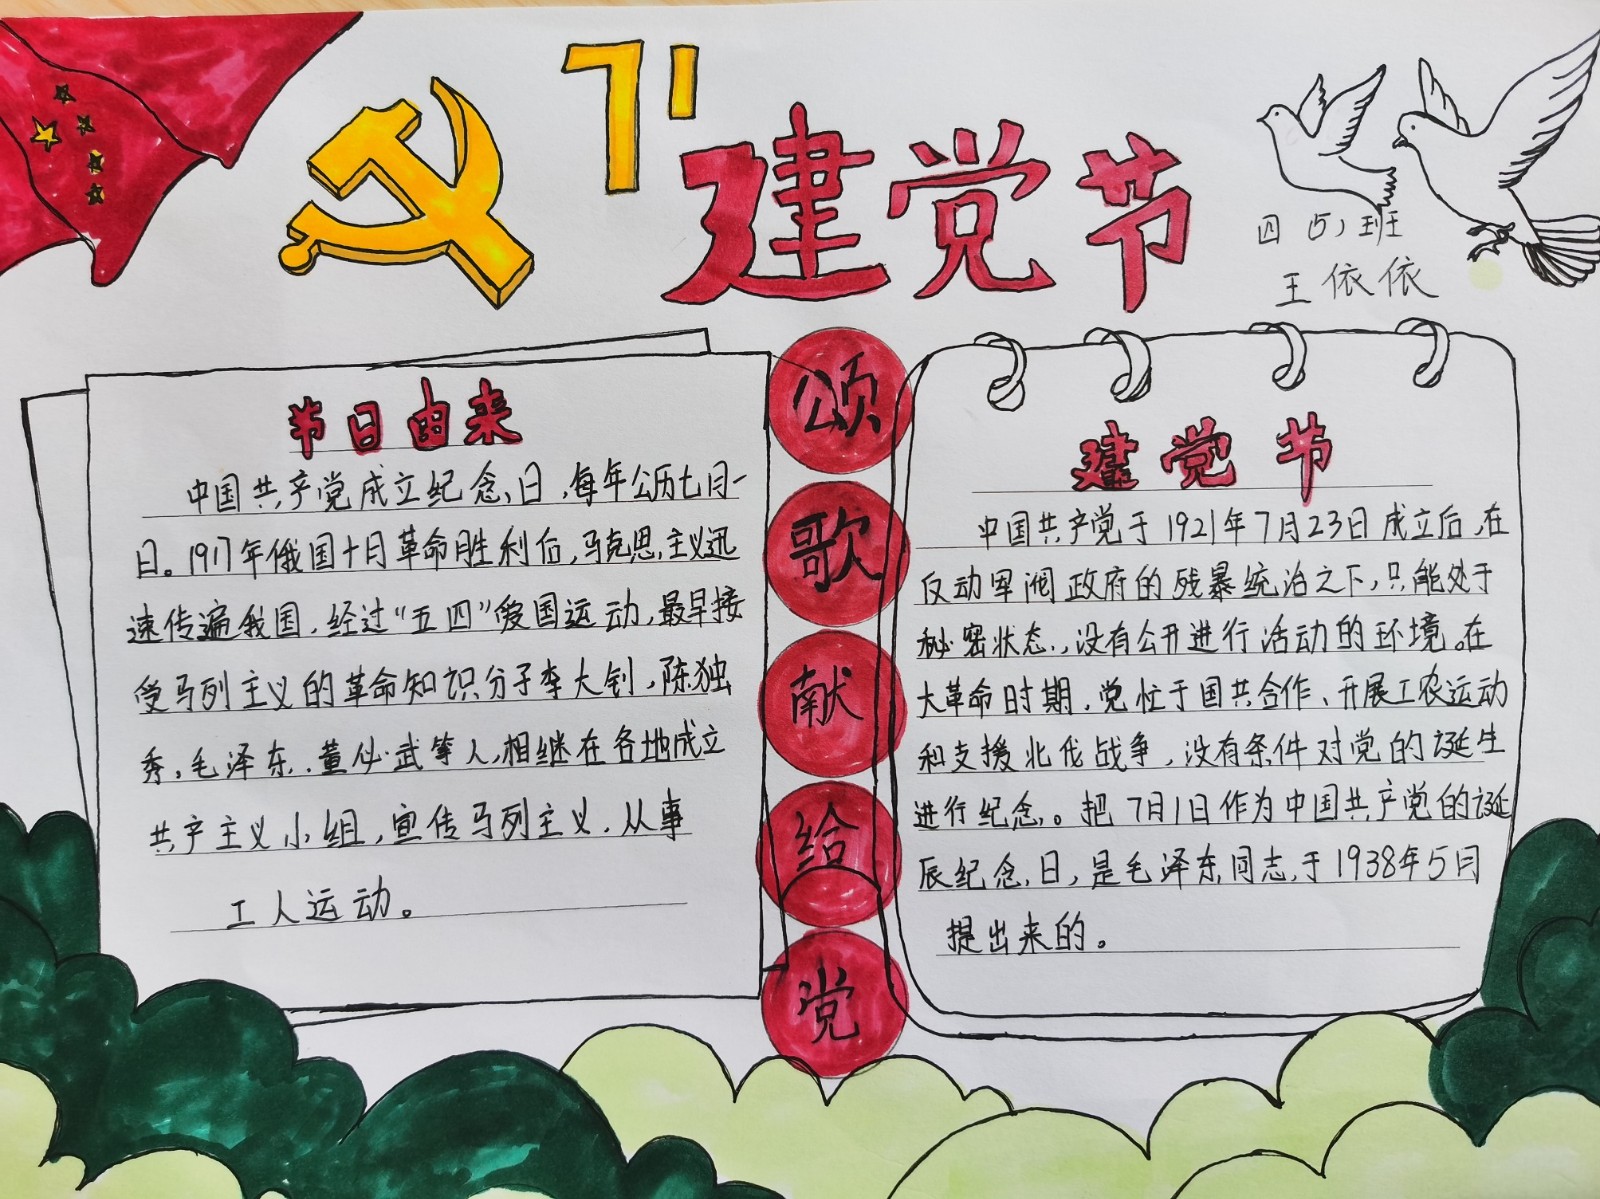 71
建党节
四(5)班
王依依
节日由来
中国共产党成立纪念日,每年公历七月一
日。1917年俄国十月革命胜利后,马克思主义迅
速传遍我国,经过“五四”爱国运动,最早接
受马列主义的革命知识分子李大钊,陈独
秀,毛泽东、董必武等人,相继在各地成立
共产主义小组,宣传马列主义,从事
工人运动。
颂
歌
献
给
党
建党节
中国共产党于1921年7月23日成立后,在
反动军阀政府的残暴统治之下,只能处于
秘密状态,没有公开进行活动的环境。在
大革命时期,党忙于国共合作、开展工农运动
和支援北伐战争,没有条件对党的诞生
进行纪念。把7月1日作为中国共产党的诞
辰纪念日,是毛泽东同志于1938年5月
提出来的。